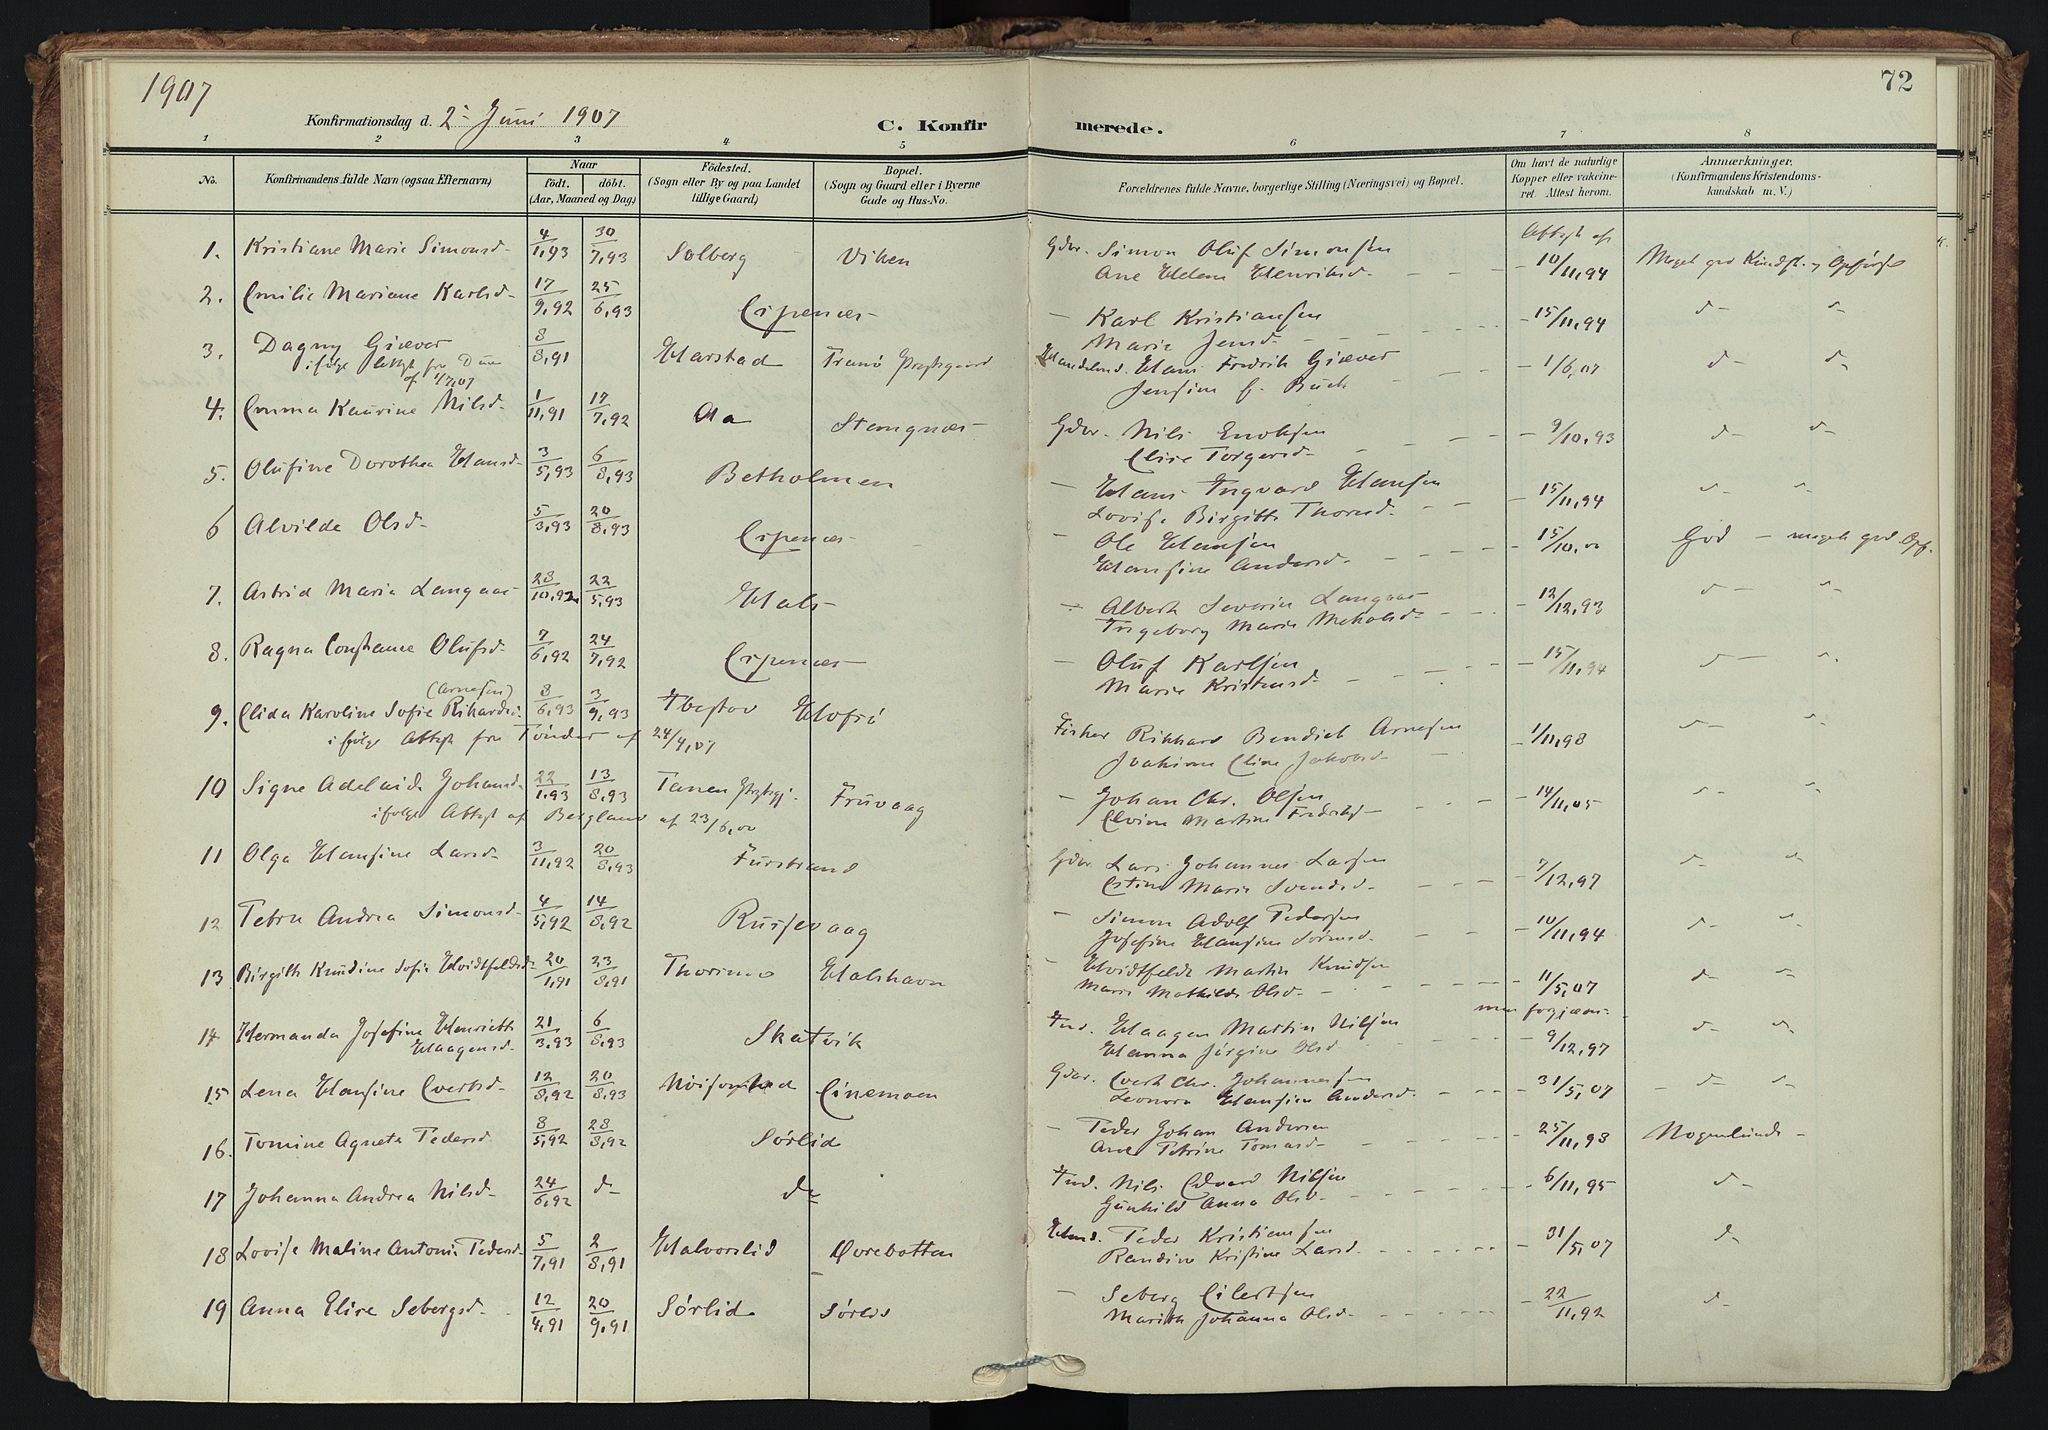 1907
72
Konfirmationsdag d. 2 Juni 1907
C. Konfirmerede.
1 2 3 4 5 6 7 8
No.
Konfirmandens fulde Navn (ogsaa Efternavn)
Naar
födt. döbt.
(Aar, Maaned og Dag)
Födested.
(Sogn eller By og paa Landet
tillige Gaard)
Bopæl.
(Sogn og Gaard eller i Byerne
Gade og Hus-No.
Forældrenes fulde Navne, borgerlige Stilling (Næringsvei) og Bopæl.
Om havt de naturlige
Kopper eller vaccine-
ret. Attest herom.
Anmærkninger.
(Konfirmandens Kristendoms-
kundskab m. V.)
1. Kristiane Marie Simonsd- 4/1,93 30/7,93 Solberg Viken Gdbr. Simon Oluf Simonsen Attest af
Ane Helene Henriksd- 10/11,94 Meget god Kundsk. og Opførsel
2. Emilie Mariane Karlsd- 17/9,92 25/6,93 Espenæs - Karl Kristiansen - 15/11,94 d- d-
Marie Jensd-
3. Dagny Giæver 8/8,91 Harstad Tranø Prestgaard Handelsmd. Hans Fredrik Giæver - 1/6,07 d- d-
ifølge Attest fra
Jensine Buck
4. Emma Kaurine Nilsd- 1/11,91 17/7,92 Aa Stangnæs- Gdbr. Nils Enoksen - 9/10,93 d- d-
Elise Torgersd-
5. Olufine Dorothea Hansd- 3/5,93 6/8,93 Betholmen - Hans Ingvard Hansen - 15/11,94 d- d-
Lovise Birgitte Thoresd-
6 Alvilde Olsd- 5/3,93 20/8,93 Espenæs- - Ole Hansen - 15/10,00 God - meget god Opf.
Hansine Andersd-
7. Astrid Marie Langaas- 28/10,92 22/5,93 Hals- - Albert Severin Langaas - 12/12,93 d- d-
Ingeborg Marie
8. Ragna Constance Olufsd- 7/6,92 24/7,92 Espenæs- - Oluf Karlsen - 15/11,94 d- d-
Marie Kristensd-
(Arnesen)
9. Elida Karoline Sofie Rikardsd- 8/6,93 3/9,93 Ibestad Hofsø Fisker Rikhard Bendick Arnesen - 1/11,98 d- d-
ifølge Attest fra Tönder af 24/4,07
Joakime Eline Jakobsd-
10 Signe Adelaide Johansd- 22/1,93 13/8,93 Tanen Prestegj. Fruvaag - Johan Chr. Olsen - 14/11,05 d- d-
ifølge Attest af Bergland af 23/6,00
Elvine Martine Fredriks-
11 Olga Hansine Larsd- 3/11,92 20/8,93 Furstrand Gdbr. Lars Johannes Larsen - 7/12,97 d- d-
Estine Marie Svendsd-
12 Petra Andrea Simonsd- 4/5,92 14/8,92 Russevaag - Simon Adolf Pedersen - 10/11,94 d- d-
Josefine Hansine Sørensd-
13 Birgitte Knudine Sofie Hvidtfeldtsd- 20/1,91 23/8,91 Thorsmo Halshavn - Hvidtfeldt Martin Knudsen - 11/5,07 d- d-
Marie Mathilde Olsd-
14 Hermanda Josefine Henriette 21/3,93 6/8,93 Skatvik Ind. Haagen Martin Nilsen - 9/12,97 d- d-
Haagensd-
Hanna Jørgine Olsd-
15 Lena Hansine Evertsd- 12/8,92 20/8,93 Einemoen Gdbr. Evert Chr. Johannesen - 31/5,07 - d- d-
Leonora Hansine Andersd-
16. Tomine Agneta Pedersd 8/5,92 28/8,92 Sørlid - Peder Johan Andersen - 25/11,98 Nogenlunde -
Ane Petrine Tomasd-
17 Johanna Andrea Nilsd- 24/6,92 d- do Ind. Nils Edvard Nilsen - 6/11,95 d-
Gunhild Anna Olsd-
18 Lovise Maline Antonie Pedersd- 5/7,91 2/8,91 Halvorslid Qvebotten Peder Kristiansen - 31/5,07 d-
Randine Kristine Larsd-
19 Anna Elise Sebergsd- 12/4,91 20/9,91 Sørlid Sørlid - Seberg Eilertsen - 22/11,92 d-
Marith Johanna Olsd-